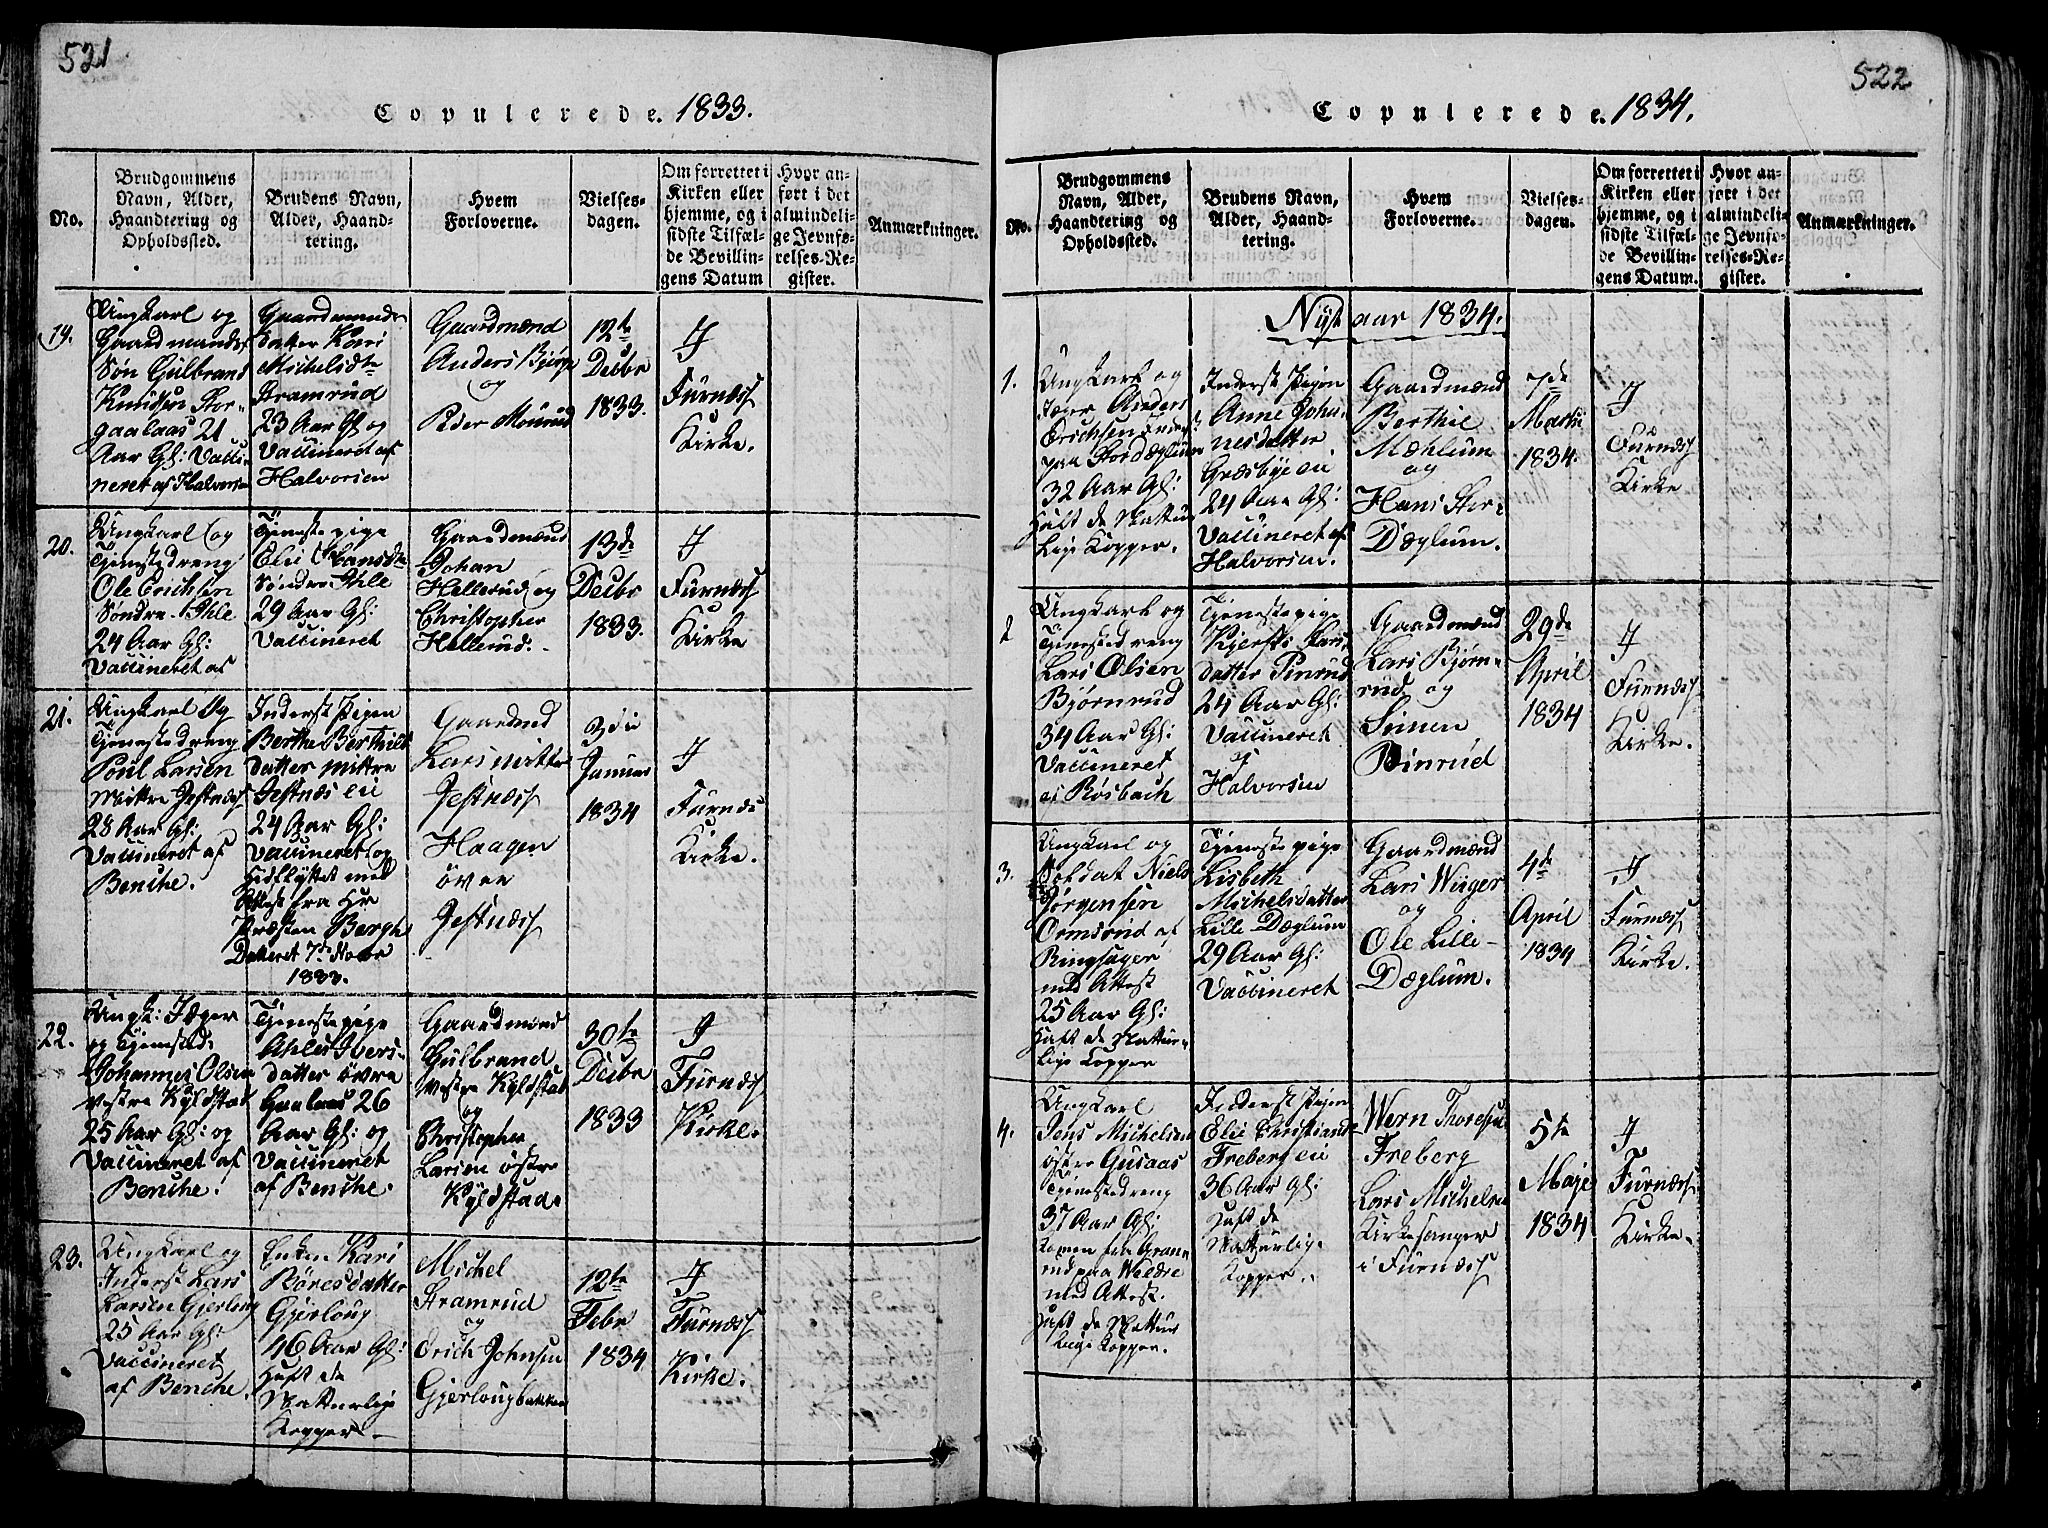 521
Copulerede. 1833.
No.
Brudgommens Navn, Alder, Haandtering og Opholdssted.
Brudens Navn, Alder, Haandtering.
Hvem Forloverne.
Vielsesdagen.
Om forrettet i Kirken eller hjemme, og i sidste Tilfælde Bevillingens Datum
Hvor anført i det almindelige Jevnførelses-Register.
Anmærkninger.
19.
Ungkarl og
Gaardmands
Søn Gulbrand
Knudsen Stor-
gaalaas 21
Aar Gl: Vacci-
neret af Halvorsen
Gaardmands
Datter Kari
Michelsdtr
Stramrud
23 Aar Gl og
Vaccineret af
Halvorsen
Gaardmænd
Anders Bjørge
og
Peder Mourud
12te
Decbr
1833.
I
Furnæss
Kirke.
20.
Ungkarl og
Tjenestedreng
Ole Erichsen
Søndre Ihle
24 Aar Gl:
Vaccineret af
Tjenestepige
Elie Hansdtr
Søndre Ihle
29 Aar Gl:
Vaccineret
Gaardmænd
Johan
Hellerud og
Christopher
Hellerud.
13de
Decbr
1833.
I
Furnæss
Kirke
21.
Ungkarl og
Tjenestedreng
Poul Larsen
Mittre Jestnæss
28 Aar Gl:
Vaccineret af
Benche.
Inderst Pigen
Berthe Berthels
datter mittre
Jestnæs eie
24 Aar Gl:
Vaccineret og
hidflyttet med
Attest fra Hr
Præsten Bergh
Dateret 7de Novbr
1833.
Gaardmd
Lars mittre
Jestnæss
Haagen
övre
Jestnæss
3die
Januar
1834
I
Furnæs
Kirke.
22.
Ungk: Jæger
og Tjenested:
Johannes Olsen
vestre Kyldstad
25 Aar Gl: og
Vaccineret af
Benche.
Tjenestepige
Ahlet Ivers-
datter övre
Gaalaas 26
Aar Gl: og
Vaccineret
af Benche.
Gaardmænd
Gulbrand
Vestre Kyldstad
og
Christopher
Larsen østre
Kyldstad.
30te
Decbr
1833
I
Furnæss
Kirke.
23.
Ungkarl og
Inderst Lars
Larsen Gjerloug
25 Aar Gl:
Vaccineret
af Benche.
Enken Kari
Röresdatter
Gjerloug
46 Aar Gl:
haft de
Natturlige
Kopper.
Michel
Stramrud
og
Erich Johnsen
Gjerlougbakken
12te
Febr
1834
I
Furnæss
Kirke.
522
Copulerede. 1834.
No.
Brudgommens Navn, Alder, Haandtering og Opholdssted.
Brudens Navn, Alder, Haandtering.
Hvem Forloverne.
Vielsesdagen.
Om forrettet i Kirken eller hjemme, og i sidste Tilfælde Bevillingens Datum.
Hvor anført i det almindelige Jevnførelses-Register.
Anmærkninger.
Nyt aar 1834.
1.
Ungkarl og
Jæger Anders
Erichsen
paa Stordæglum
32 Aar Gl:
haft de Nattur
lige Kopper.
Inderst Pigen
Anne Johan-
nesdatter
Græsbye eie
24 Aar Gl:
Vaccineret af
Halvorsen.
Gaardmænd
Berthil
Mæhlum
og
Hans Stor-
Dæglum.
7de
Martii
1834.
I
Furnæss
Kirke
2
Ungkarl og
Tjenestedreng
Lars Olsen
Bjørnrud
34 Aar Gl:
Vaccineret
af Røsbach
Tjenestepige
Kjersti Lars
datter Pinrud
24 Aar Gl:
Vaccineret
af
Halvorsen
Gaardmænd
Lars Bjørn-
rud og
Simen
Pinrud
29de
April
1834
I
Furnæss
Kirke.
3.
Ungkarl og
Soldat Niels
Jörgensen
Ormsrud af
Ringsager
med Attest
25 Aar Gl:
haft de Nattur-
lige Kopper
Tjenestepige
Lisbeth
Michelsdatter
Lille Dæglum
29 Aar Gl:
Vaccineret
Gaardmænd
Lars Wiiger
og
Ole Lille-
Dæglum.
4de
April
1834
I
Furnæss
Kirke.
4.
Ungkarl
Jens Michelsen
østre Gusaas
Tjenestedreng
37 Aar Gl:
kommen fra Gran
med Attest.
haft de Nattur
lige Kopper.
Inderst Pigen
Elie Christians
Freberg eie
36 Aar Gl:
haft de
Natturlige
Kopper.
Wern Thoresen
Freberg
Lars Michelsen
Kirkesanger
i Furnæss
5te
Maje
1834
I
Furnæss
Kirke.